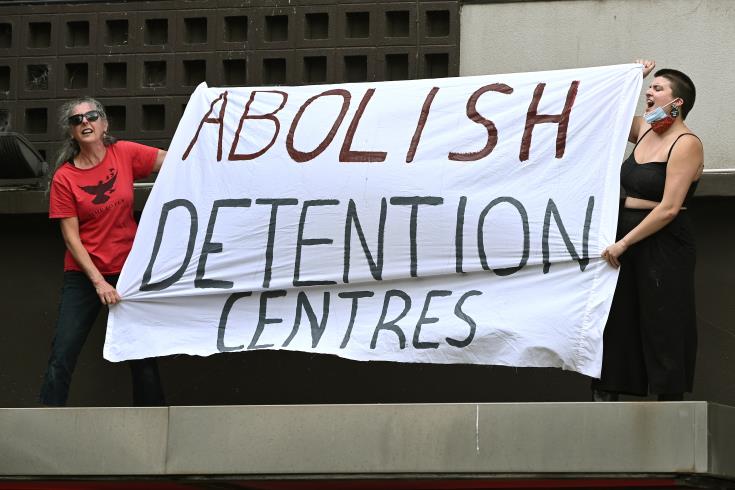 ABOLISH
DETENTION
CENTRES